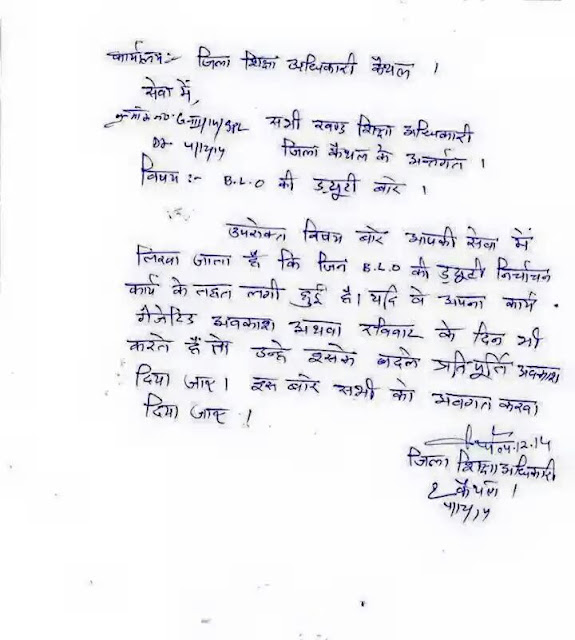 कार्यालय:- जिला शिक्षा अधिकारी कैथल ।
सेवा में,
क्रमांक नं० G-III/14/SPL सभी खण्ड शिक्षा अधिकारी
Dt- 4/12/14 जिला कैथल के अन्तर्गत ।
विषय:- B.L.O की ड्यूटी बारे ।
उपरोक्त विषय बारे आपकी सेवा में
लिखा जाता है कि जिन B.L.O की ड्यूटी निर्वाचन
कार्य के तहत लगी हुई है। यदि वे अपना कार्य
गैजेटिड अवकाश अथवा रविवार के दिन भी
करते हैं तो उन्हे इसके बदले प्रतिपूर्ति अवकाश
दिया जाए। इस बारे सभी को अवगत करवा
दिया जाए ।
04.12.14
जिला शिक्षा अधिकारी
कैथल ।
4/12/14